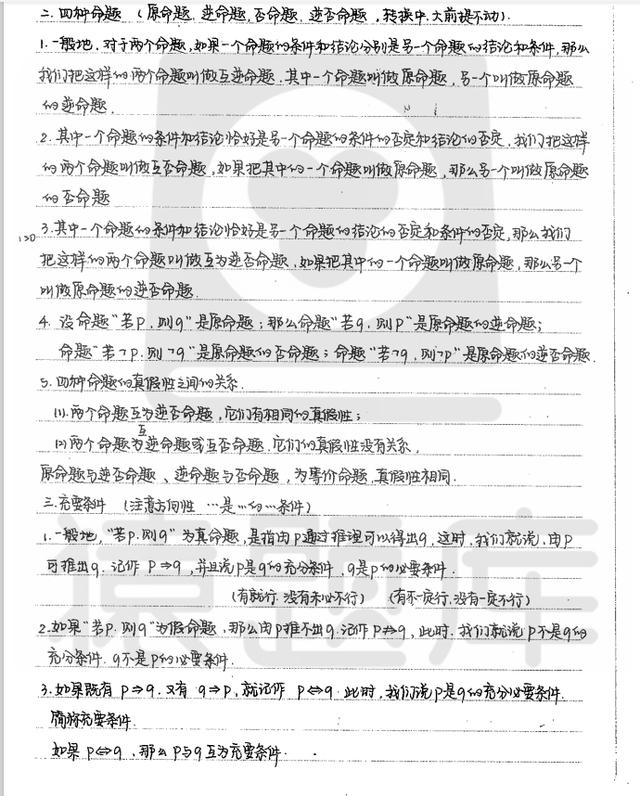 二.四种命题 (原命题.逆命题,否命题.逆否命题,转换中.大前提不动).
1.一般地.对于两个命题,如果一个命题的条件和结论分别是另一个命题的结论和条件,那么
我们把这样的两个命题叫做互逆命题.其中一个命题叫做原命题,另一个叫做原命题
的逆命题.
2.其中一个命题的条件和结论恰好是另一个命题的条件的否定和结论的否定.我们把这样
的两个命题叫做互否命题,如果把其中的一个命题叫做原命题,那么另一个叫做原命题
的否命题
3.其中一个命题的条件和结论恰好是另一个命题的结论的否定和条件的否定,那么我们
把这样的两个命题叫做互为逆否命题.如果把其中的一个命题叫做原命题,那么另一个
叫做原命题的逆否命题.
4.设命题"若p.则q"是原命题;那么命题"若q.则p"是原命题的逆命题;
命题"若¬p.则¬q"是原命题的否命题;命题"若¬q,则¬p"是原命题的逆否命题.
5.四种命题的真假性之间的关系.
(1).两个命题互为逆否命题,它们有相同的真假性;
(2)两个命题为互逆命题或互否命题.它们的真假性没有关系.
原命题与逆否命题、逆命题与否命题,为等价命题.真假性相同.
三.充要条件 (注意方向性 …是…的…条件)
1.一般地,"若p.则q"为真命题,是指由p通过推理可以得出q.这时.我们就说.由p
可推出q.记作 p⇒q,并且说p是q的充分条件.q是p的必要条件.
(有就行.没有未必不行) (有不一定行.没有一定不行)
2.如果"若p.则q"为假命题.那么由p推不出q.记作p⇏q,此时.我们就说p不是q的
充分条件.q不是p的必要条件.
3.如果既有p⇒q.又有q⇒p,就记作 p⇔q.此时,我们说p是q的充分必要条件.
简称充要条件.
如果p⇔q.那么p与q互为充要条件.
猿题库